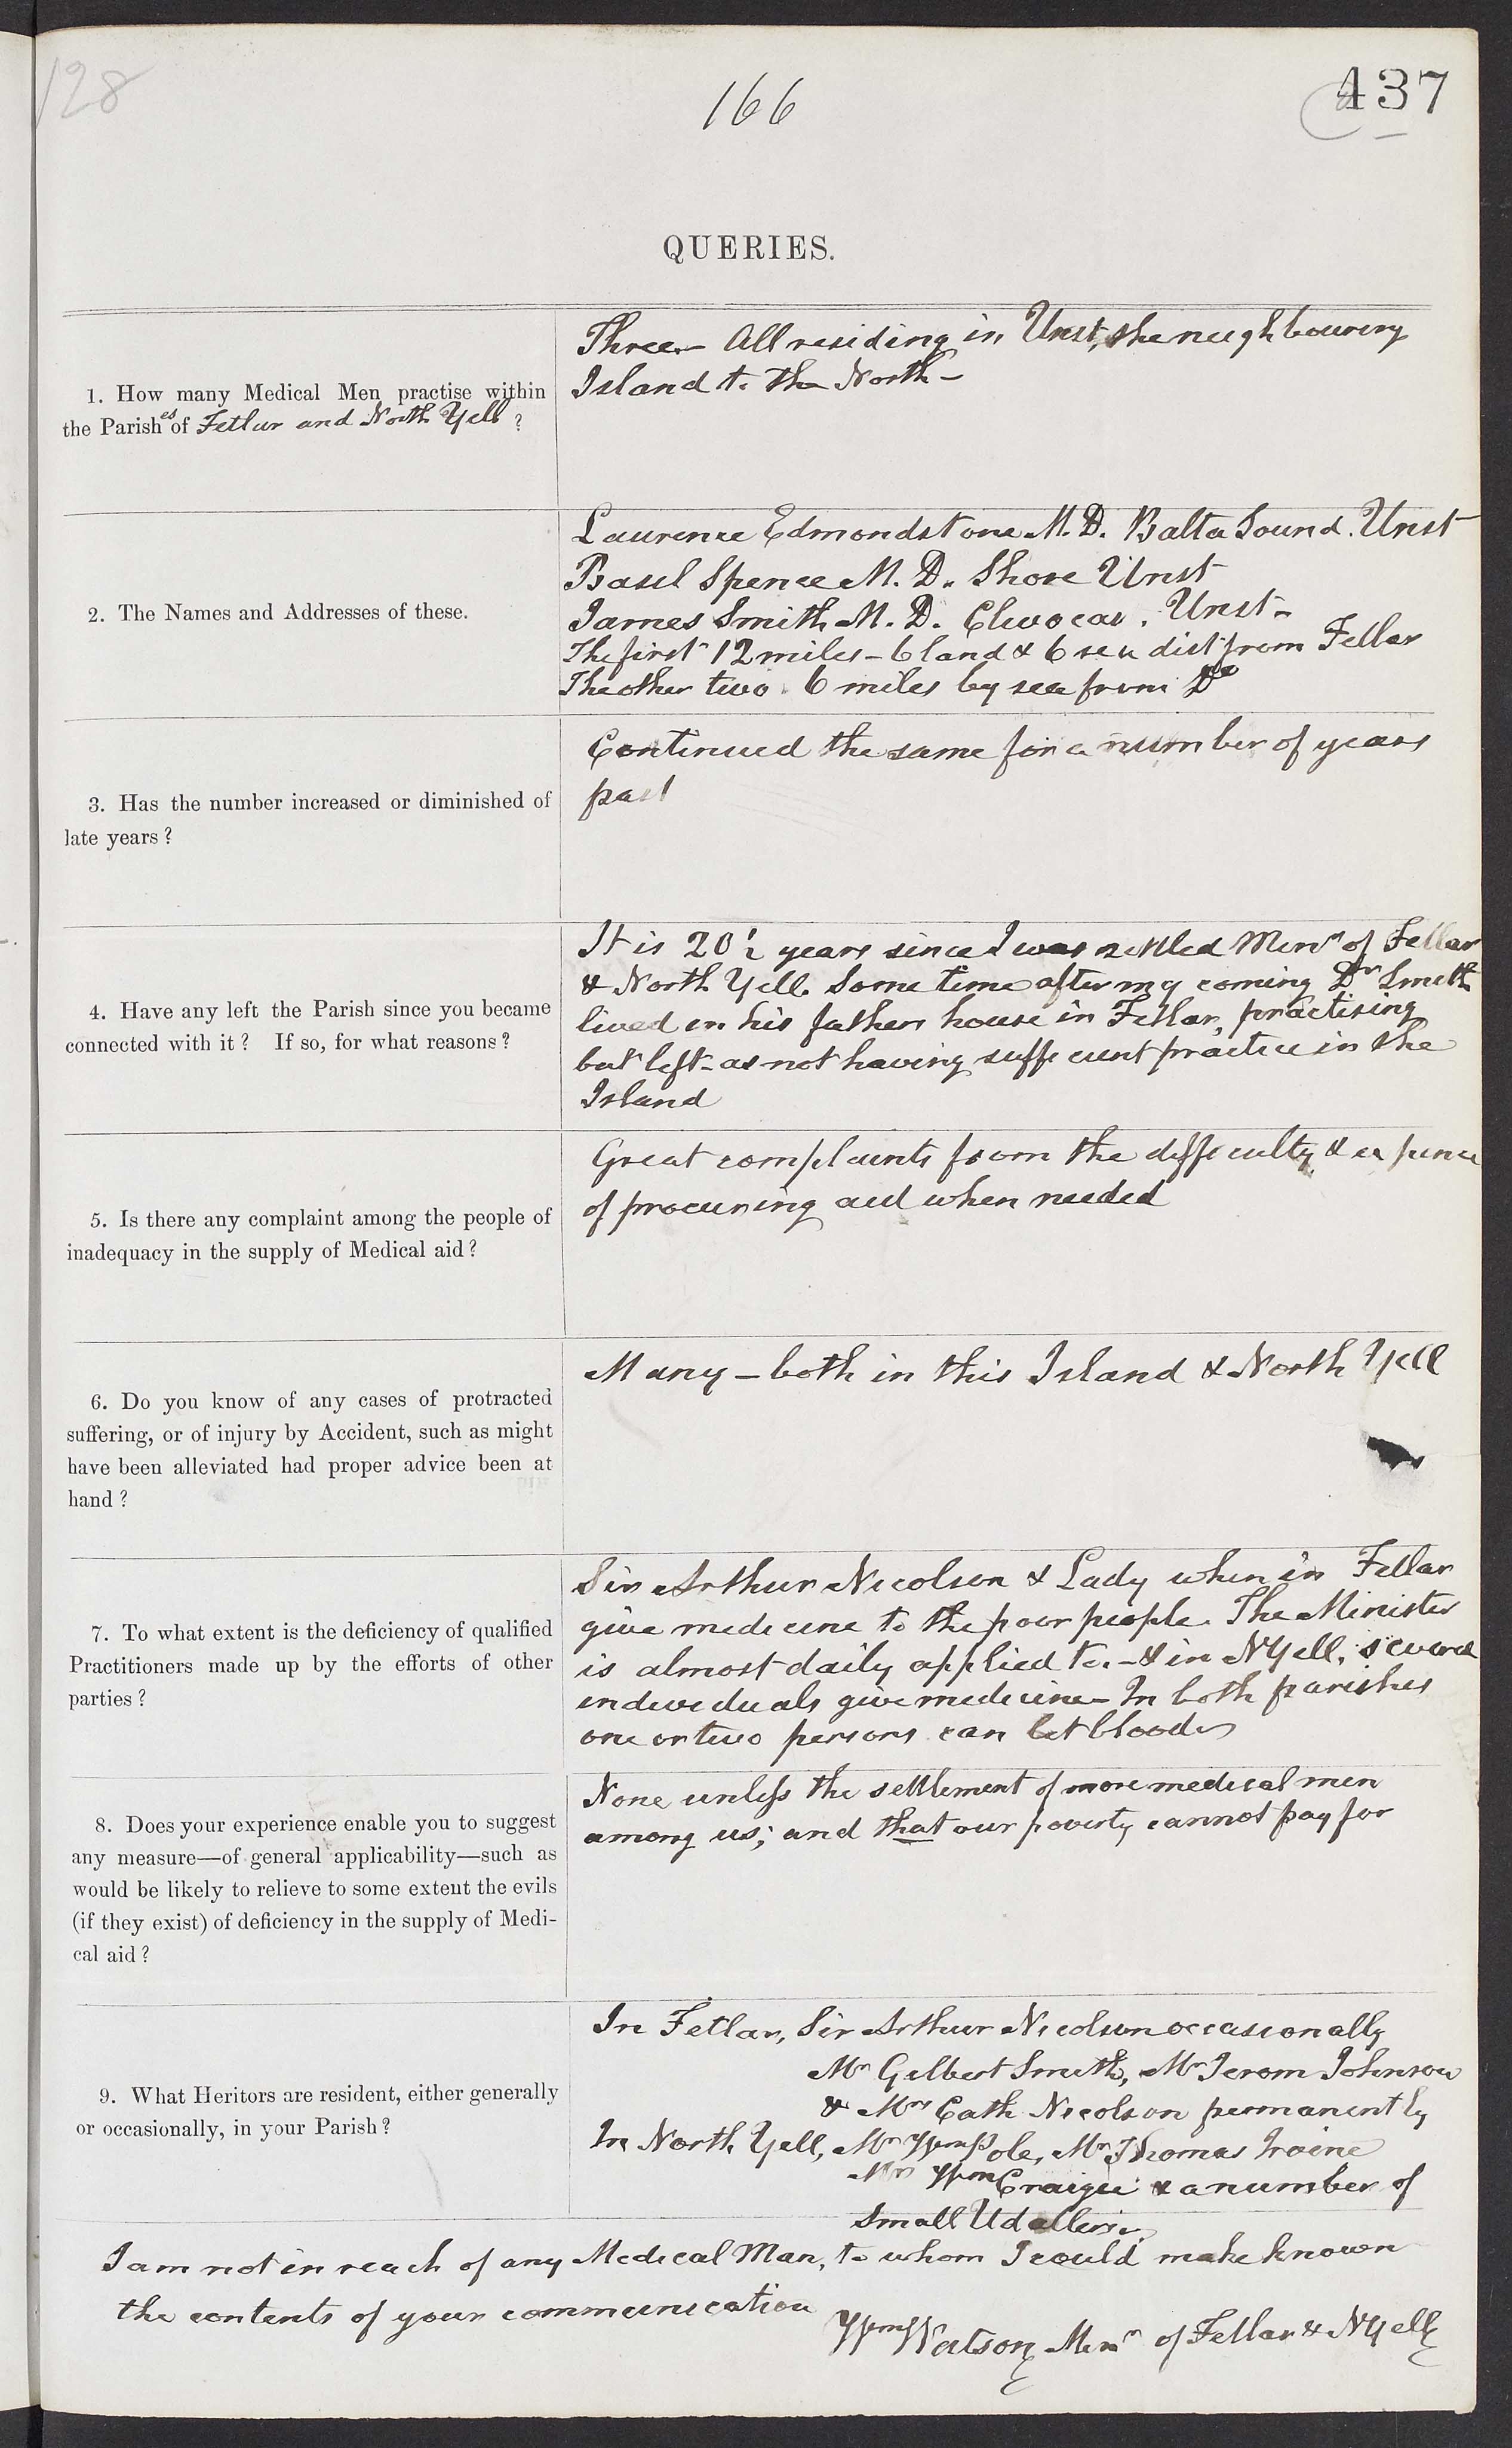 128
166
437
QUERIES.
1. How many Medical Men practise within
the Parishes of Fetlar and North Yell ?
Three - All residing in Unst, the neighbouring
Island to the North -
2. The Names and Addresses of these.
Laurence Edmondstone M.D. Balta Sound. Unst
Basil Spence M.D. Shore Unst
James Smith M.D. Unst -
The first 12 miles - 6 land & 6 sea dist from Fetlar
The other two 6 miles by sea from Do
3. Has the number increased or diminished of
late years ?
Continued the same for a number of years
past
4. Have any left the Parish since you became
connected with it ? If so, for what reasons ?
It is 20½ years since I was settled Minr of Fetlar
& North Yell. Some time after my coming Dr Smith
lived in his fathers house in Fetlar, practising
but left - as not having sufficient practice in the
Island
5. Is there any complaint among the people of
inadequacy in the supply of Medical aid ?
Great complaints from the difficulty & expence
of procuring aid when needed
6. Do you know of any cases of protracted
suffering, or of injury by Accident, such as might
have been alleviated had proper advice been at
hand ?
Many - both in this Island & North Yell
7. To what extent is the deficiency of qualified
Practitioners made up by the efforts of other
parties ?
Sir Arthur Nicolson & Lady when in Fetlar
give medicine to the poor people. The Minister
is almost daily applied to. - & in N Yell, several
individuals give medicine - In both parishes
one or two persons can let blood
8. Does your experience enable you to suggest
any measure—of general applicability—such as
would be likely to relieve to some extent the evils
(if they exist) of deficiency in the supply of Medi-
cal aid ?
None unless the settlement of more medical men
among us; and that our poverty cannot pay for
9. What Heritors are resident, either generally
or occasionally, in your Parish ?
In Fetlar, Sir Arthur Nicolson occasionally
Mr Gilbert Smith, Mr Jerom Johnson
& Mrs Cath Nicolson permanently
In North Yell, Mr Wm Pole, Mr Thomas Irvine
Wm Craigie & a number of
Small Udallers.
I am not in reach of any Medical Man, to whom I could make known
the contents of your communication
Wm Watson Minr of Fetlar & N Yell